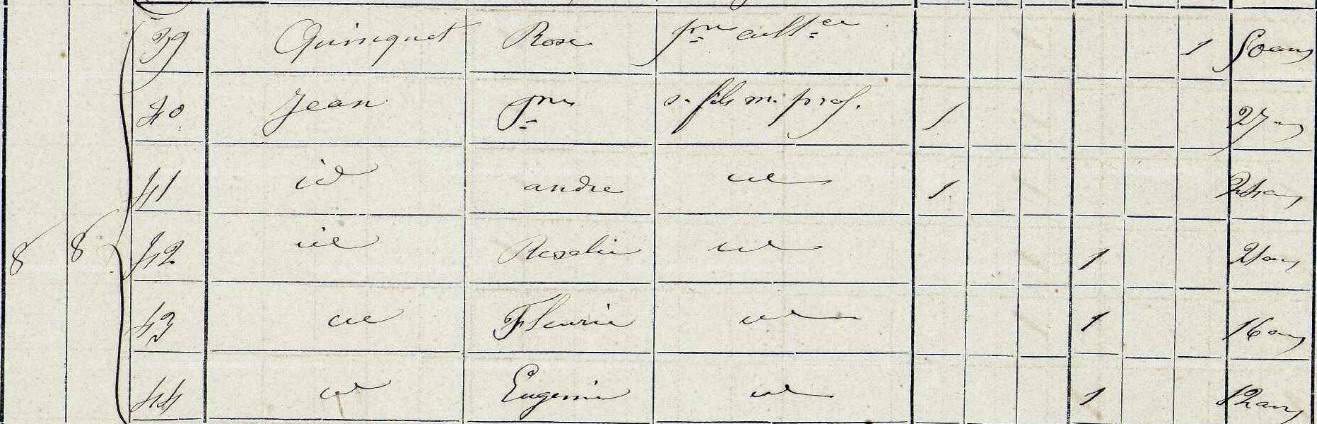 39 Quinquet Rose 1 50 ans
40 Jean s. fils m. prof. 1 27 ans
41 id andre id 1 24 ans
8 8 42 id Rosalie id 1 21 ans
43 id Fleurie id 1 16 ans
44 id Eugenie id 1 12 ans